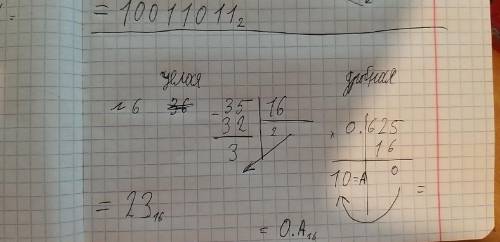 = 10011011₂
целая дробная
№6 36 -35 | 16
32 | 2
3
× 0.625
16
10=A | 0
= 23₁₆
= 0.A₁₆
=